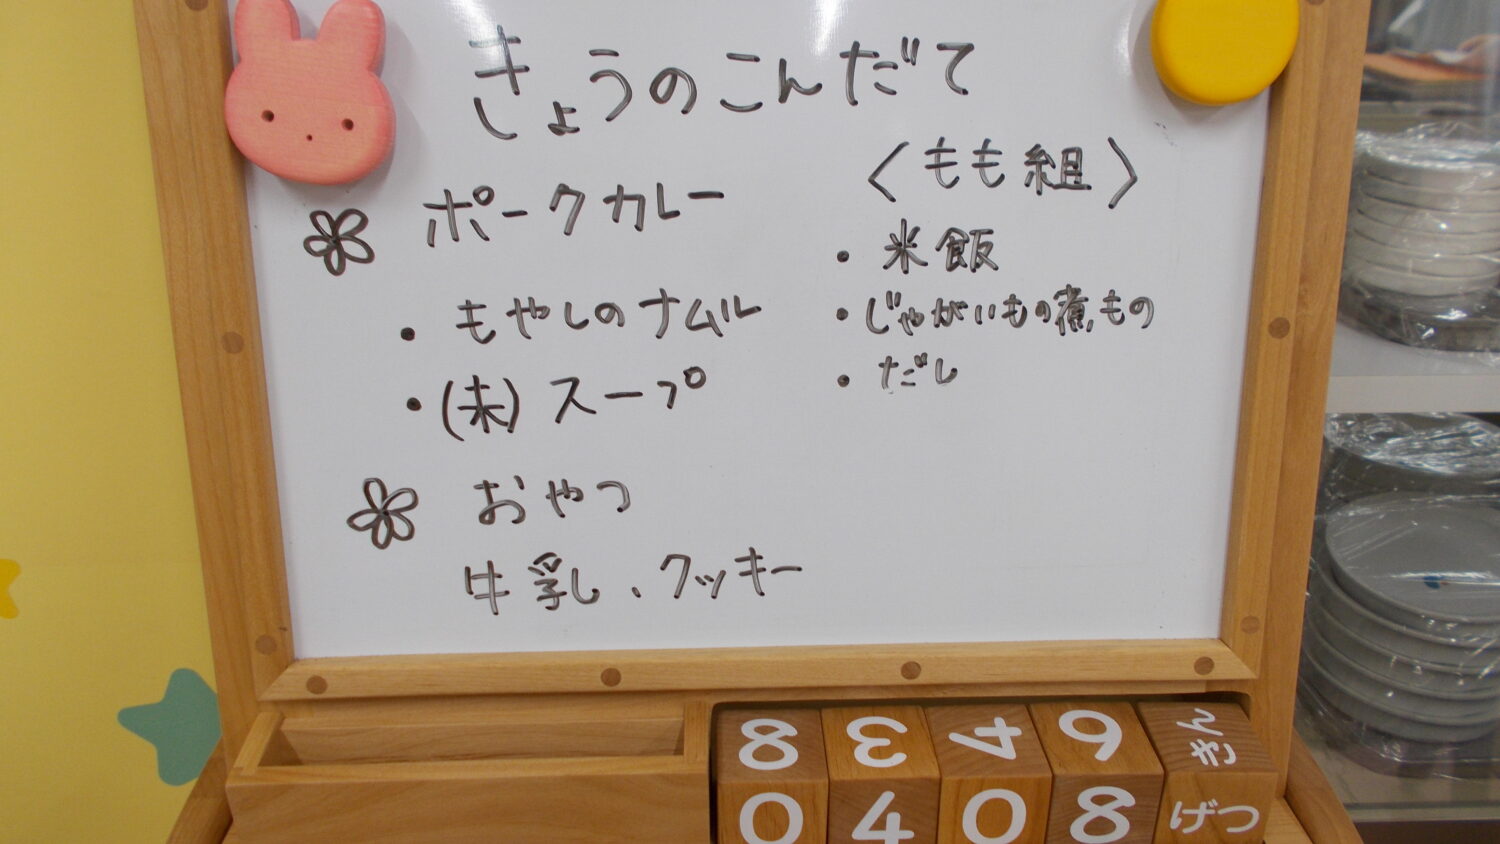 きょうのこんだて
ポークカレー
・もやしのナムル
・(未)スープ
おやつ
牛乳、クッキー
〈もも組〉
・米飯
・じゃがいもの煮もの
・だし
8 3 4 6 きん
0 4 0 8 げつ